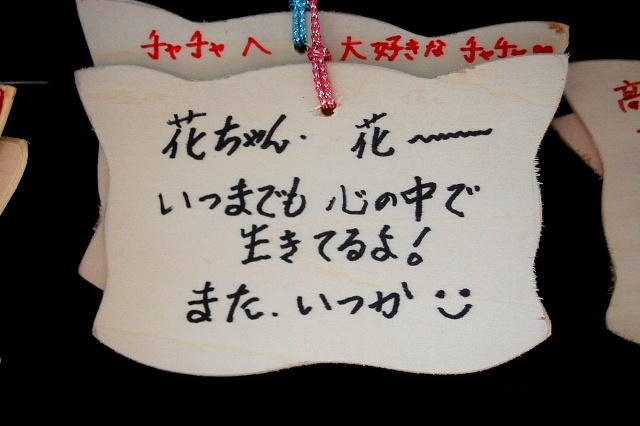 チャチャへ 大好きな チャチャ
花ちゃん. 花〜
いつまでも 心の中で
生きてるよ!
また. いつか
高